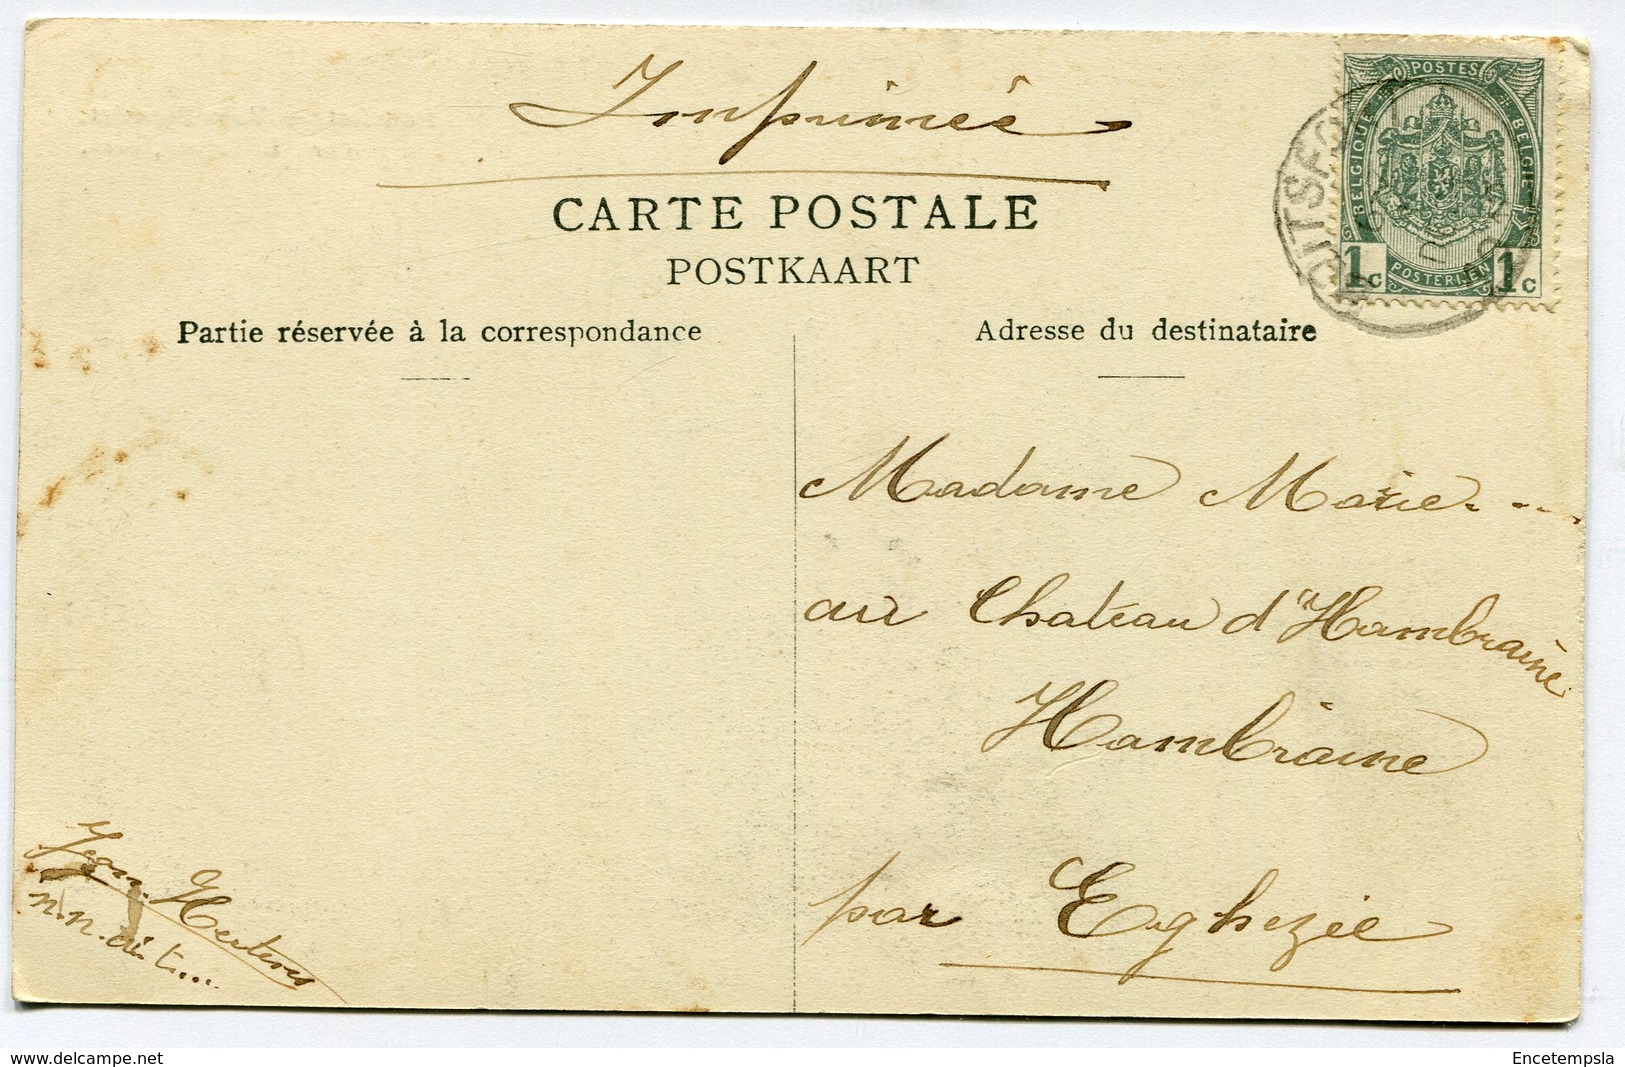 Imprimée
CARTE POSTALE
POSTKAART
Partie réservée à la correspondance
Adresse du destinataire
POSTES
BELGIQUE
BELGIE
POSTERIJEN
1c 1c
Madame Marie....
au Chateau d'Hambraine
Hambraine
par Eghezée
Jean
n.n. ai t...
www.delcampe.net
Encetempsla